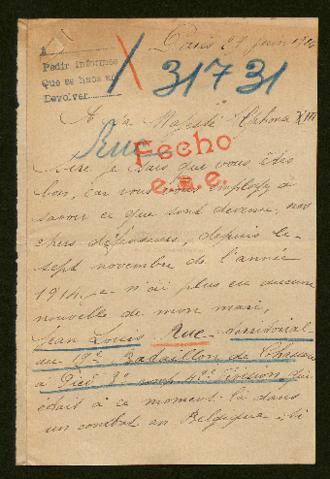 A
Pedir informes
Que se haga
Devolver
Paris 27 juin 1916
31731
A sa Majesté Alphonse XIII
Rue
Fecho
e.e.e.
Sire je sais que vous êtes
bon, car vous vous employez a
savoir ce que sont devenus nos
chers défenseurs, depuis le
sept novembre de l'année
1914 je n'ai plus eu aucune
nouvelle de mon mari,
Jean Louis Rue
au 19e Bataillon de Chasseurs
à Pied 3e 42e Division qui
était à ce moment là dans
un combat en Belgique, si